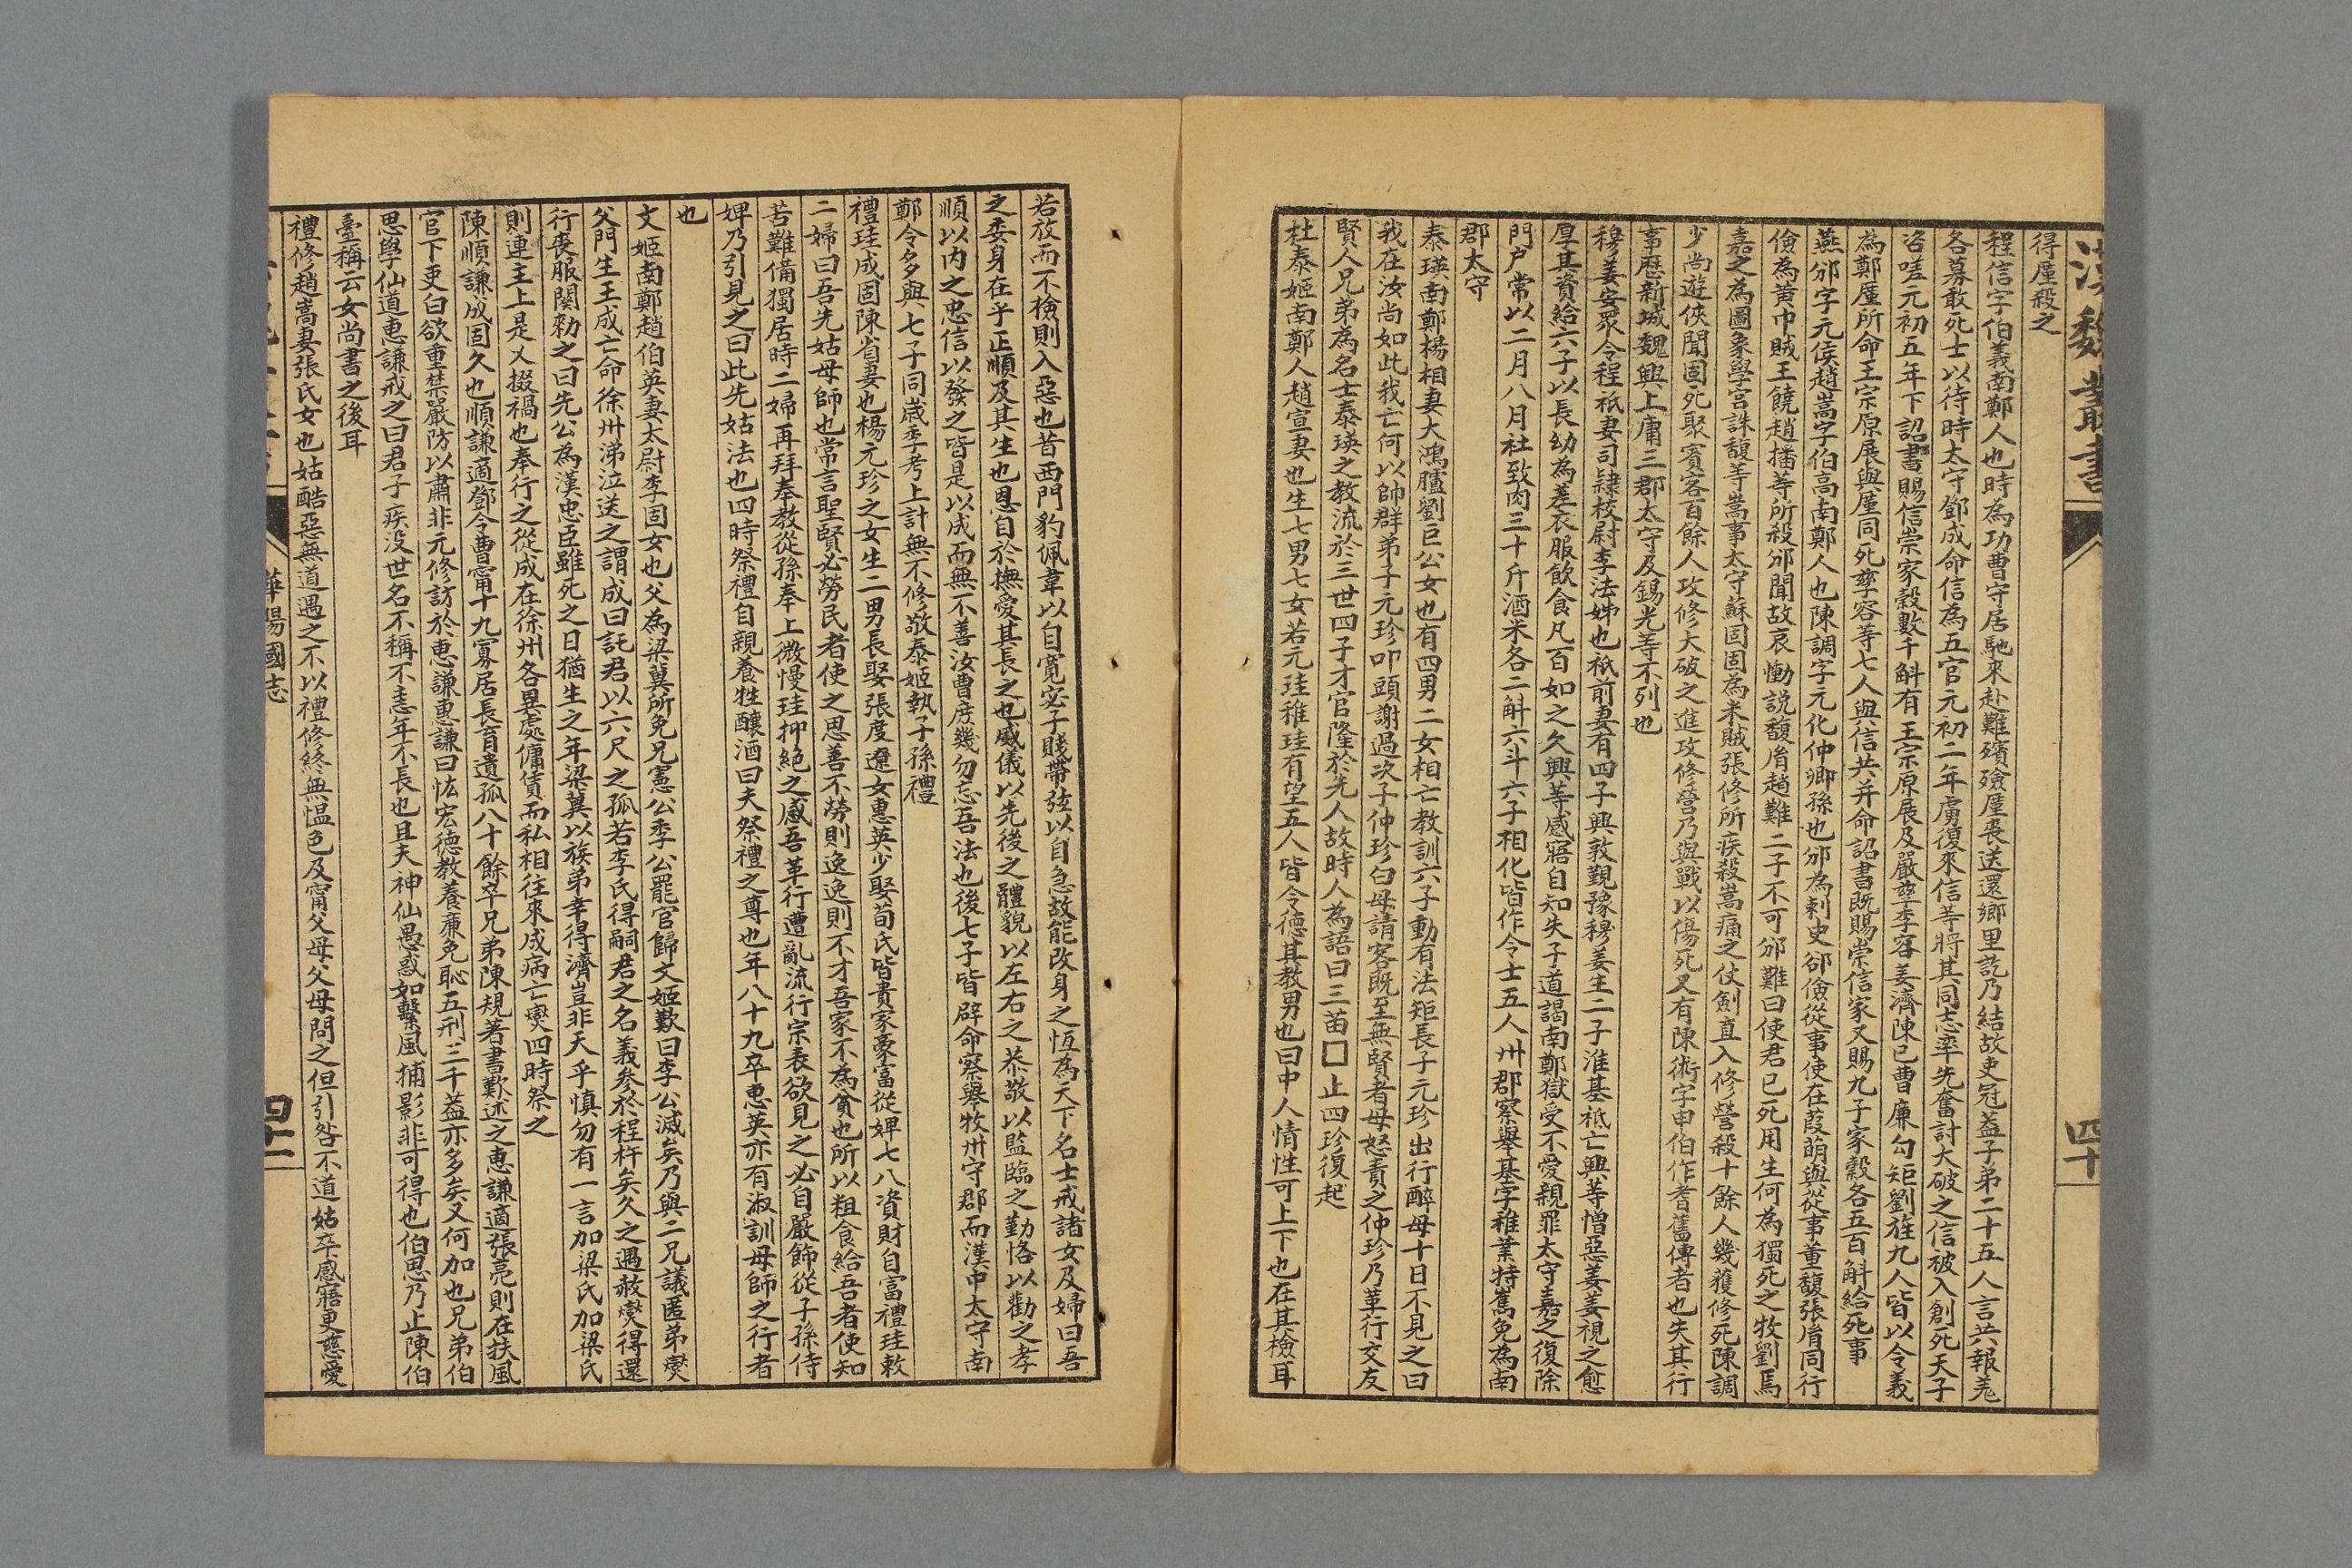 漢魏叢書
四十
得廑殺之
程信字伯義南鄭人也時為功曹守居馳來赴難殯殮廑喪送還鄉里訖乃結故吏冠蓋子弟二十五人言共報羌
各募敢死士以待時太守鄧成命信為五官元初二年虜復來信等將其同志率先奮討大破之信被八創死天子
咨嗟元初五年下詔書賜信崇家穀數千斛有王宗原展及嚴孳李容姜濟陳已曹廉勾矩劉旌九人皆以令義
為鄭廑所命王宗原展與廑同死孳容等七人與信共并命詔書既賜崇信家又賜九子家穀各五百斛給死事
燕邠字元侯趙嵩字伯高南鄭人也陳調字元化仲卿孫也邠為剌史郤儉從事使在葭萌與從事董馥張胤同行
儉為黃巾賊王饒趙播等所殺邠聞故哀慟説馥胤趙難二子不可邠難曰使君已死用生何為獨死之牧劉焉
嘉之為圖象學宮誅馥等嵩事太守蘇固固為米賊張修所疾殺嵩痛之仗劍直入修營殺十餘人幾獲修死陳調
少尚遊俠聞固死聚賓客百餘人攻修大破之進攻修營乃與戰以傷死又有陳術字申伯作耆舊傳者也失其行
事歷新城魏興上庸三郡太守及錫光等不列也
穆姜安眾令程祇妻司隸校尉李法姊也祇前妻有四子興敦觀豫穆姜生二子淮基祗亡興等憎惡姜姜視之愈
厚其資給六子以長幼為差衣服飲食凡百如之久興等感寤自知失子道謁南鄭獄受不愛親罪太守嘉之復除
門户常以二月八月社致肉三十斤酒米各二斛六斗六子相化皆作令士五人州郡察舉基字稚業特雋免為南
郡太守
泰瑛南鄭楊相妻大鴻臚劉巨公女也有四男二女相亡教訓六子動有法矩長子元珍出行醉母十日不見之曰
我在汝尚如此我亡何以帥群弟子元珍叩頭謝過次子仲珍白母請客既至無賢者母怒責之仲珍乃革行交友
賢人兄弟為名士泰瑛之教流於三世四子才官隆於先人故時人為語曰三苗□止四珍復起
杜泰姬南鄭人趙宣妻也生七男七女若元珪稚珪有望五人皆令德其教男也曰中人情性可上下也在其檢耳
若放而不檢則入惡也昔西門豹佩韋以自寬宓子賤帶弦以自急故能改身之恆為天下名士戒諸女及婦曰吾
之委身在乎正順及其生也恩自於撫愛其長之也威儀以先後之體貌以左右之恭敬以監臨之勤恪以勸之孝
順以内之忠信以發之皆是以成而無不善汝曹庶幾勿忘吾法也後七子皆辟命察舉牧州守郡而漢中太守南
鄭令多與七子同歲季考上計無不修敬泰姬執子孫禮
禮珪成固陳省妻也楊元珍之女生二男長娶張度遼女惠英少娶荀氏皆貴家豪富從婢七八資財自富禮珪敕
二婦曰吾先姑母師也常言聖賢必勞民者使之思善不勞則逸逸則不才吾家不為貧也所以粗食給吾者使知
苦難備獨居時二婦再拜奉教從孫奉上微慢珪抑絕之感吾革行遭亂流行宗表欲見之必自嚴飾從子孫侍
婢乃引見之曰此先姑法也四時祭禮自親養牲釀酒曰夫祭禮之尊也年八十九卒惠英亦有淑訓母師之行者
也
文姬南鄭趙伯英妻太尉李固女也父為梁冀所免兄憲公季公罷官歸文姬歎曰李公滅矣乃與二兄議匿弟燮
父門生王成亡命徐州涕泣送之謂成曰託君以六尺之孤若李氏得嗣君之名義參於程杵矣久之遇赦燮得還
行喪服闋勑之曰先公為漢忠臣雖死之日猶生之年梁冀以族弟幸得濟豈非天乎慎勿有一言加梁氏加梁氏
則連主上是又掇禍也奉行之從成在徐州各異處傭賃而私相往來成病亡燮四時祭之
陳順謙成固久也順謙適鄧令曹甯十九寡居長育遺孤八十餘卒兄弟陳規著書歎述之惠謙適張亮則在扶風
官下吏白欲重禁嚴防以肅非元修訪於惠謙惠謙曰恢宏德教養亷免恥五刑三千蓋亦多矣又何加也兄弟伯
思學仙道惠謙戒之曰君子疾沒世名不稱不恚年不長也且夫神仙愚惑如繫風捕影非可得也伯思乃止陳伯
臺稱云女尚書之後耳
禮修趙嵩妻張氏女也姑酷惡無道遇之不以禮修終無愠色及甯父母父母問之但引咎不道姑卒感寤更慈愛
華陽國志
四十一